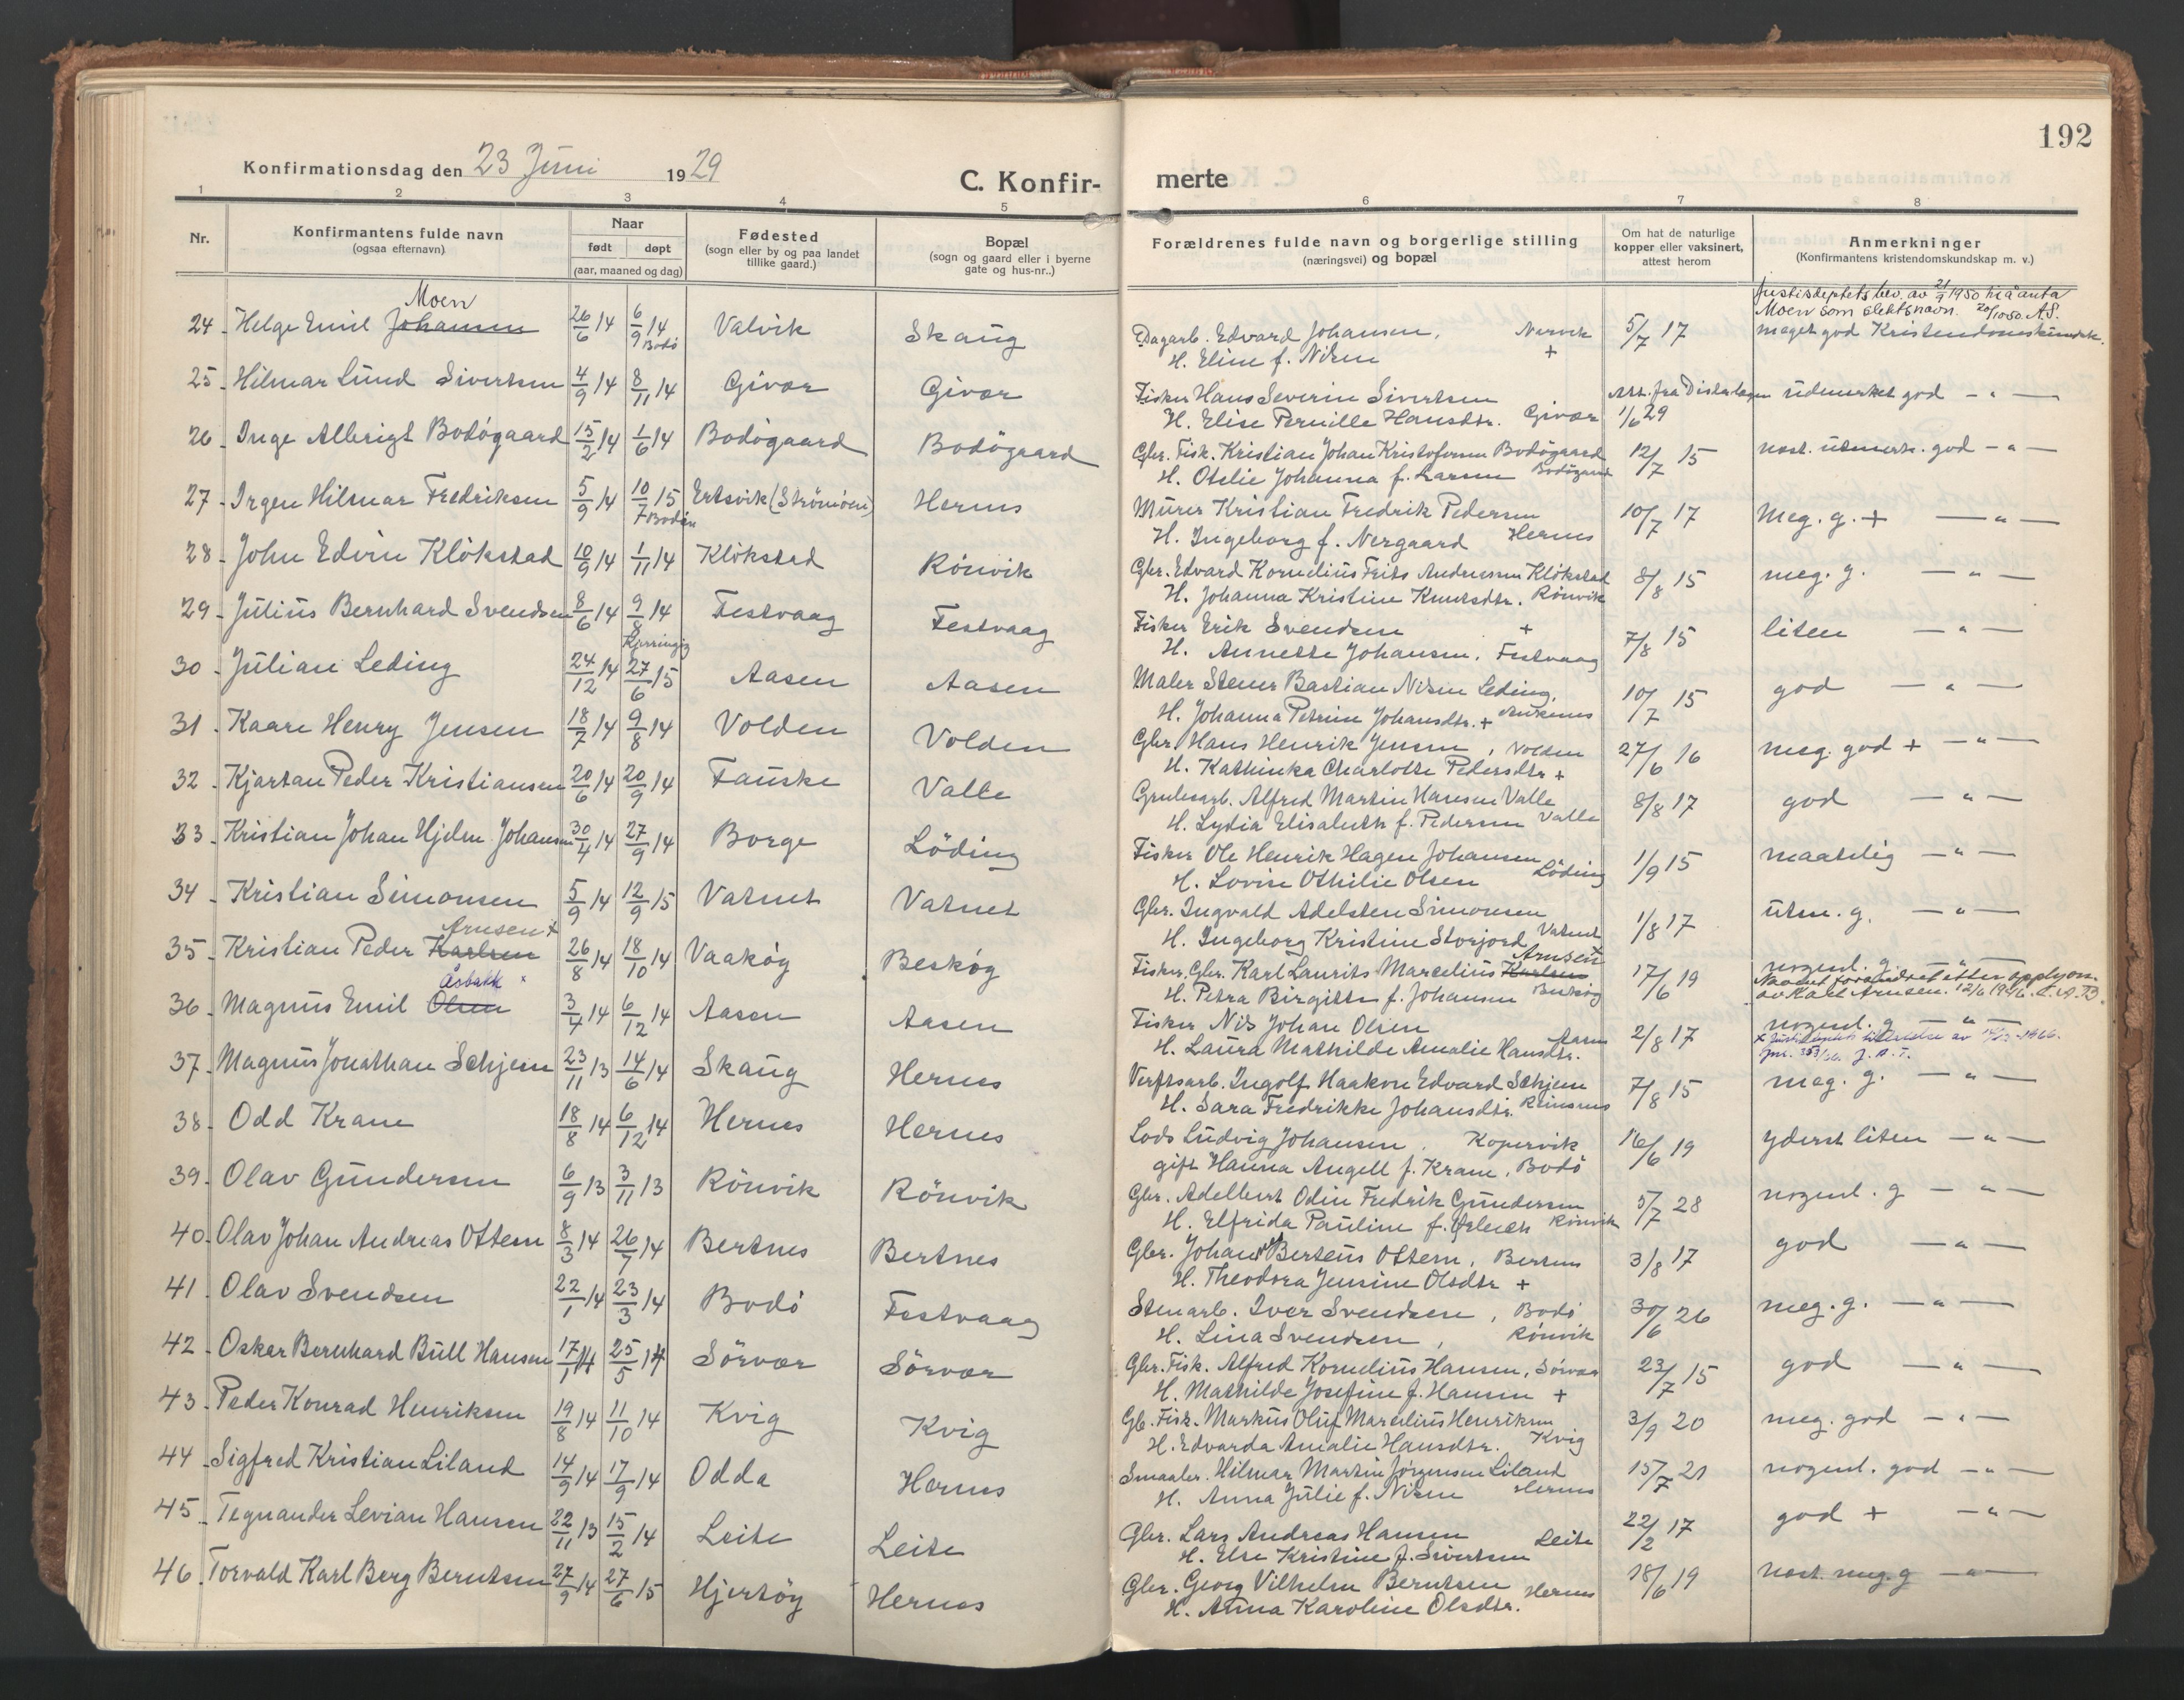 192
Konfirmationsdag den 23 Juni 1929
C. Konfir- merte
1 2 3 4 5 6 7 8
Nr.
Konfirmantens fulde navn
(ogsaa efternavn)
Naar
født døpt
(aar, maaned og dag)
Fødested
(sogn eller by og paa landet
tillike gaard.)
Bopæl
(sogn og gaard eller i byerne
gate og hus-nr..)
Forældrenes fulde navn og borgerlige stilling
(næringsvei) og bopæl
Om hat de naturlige
kopper eller vaksinert,
attest herom
Anmerkninger
(Konfirmantens kristendomskundskap m. v.)
Justisdeptets bev. av 21/9 1950 til å anta
Moen som slektsnavn. 20/10 50. A.S.
Moen
24 Helge Emil Johansen 26/6 14 6/9 14 Bodö Valvik Skaug Dagarb. Edvard Johansen, Narvik 5/7 17 meget god Kristendomskundsk.
H. Eline f. Nilsen +
25 Hilmar Lund Sivertsen 4/9 14 8/11 14 Givær Givær Fisker Hans Severin Sivertsen Att. fra Distr.lægen udmerket god — " —
H. Elise Pernille Hansdtr. Givær 1/6 29
26 Inge Albrigt Bodøgaard 15/2 14 1/6 14 Bodøgaard Bodøgaard Gbr. Fisk. Kristian Johan Kristofersen Bodøgaard 12/7 15 næst. utmerk. god — " —
H. Otelie Johanna f. Larsen Bodøgaard
27 Irgen Hilmar Fredriksen 5/9 14 10/7 15 Bodin Ertsvik (Strömöen) Hernes Murer Kristian Fredrik Pedersen 10/7 17 Meg. g. + — " —
H. Ingeborg f. Nergaard Hernes
28 John Edvin Klökstad 10/9 14 1/11 14 Klökstad Rönvik Gbr. Edvard Kornelius Frits Andreassen Klökstad 8/8 15 meg. g. — " —
H. Johanna Kristine Knutsdtr. Rönvik
29 Julius Bernhard Svendsen 8/6 14 9/8 14 Kjerringø Festvaag Festvaag Fisker Erik Svendsen + 7/8 15 liten — " —
H. Annette Johansen. Festvaag
30 Julian Leding 24/12 14 27/6 15 Aasen Aasen Maler Stener Bastian Nilsen Leding, 10/7 15 god — " —
H. Johanna Petrine Johansdtr. +
31 Kaare Henry Jensen 18/7 14 9/8 14 Volden Volden Gbr. Hans Henrik Jensen, Volden 27/6 16 meg. god + — " —
H. Kathinka Charlotte Pedersdtr +
32 Kjartan Peder Kristiansen 20/6 14 20/9 14 Fauske Valle Grubearb. Alfred Martin Hansen Valle 8/8 17 god — " —
H. Lydia Elisabeth f. Pedersen Valle
33 Kristian Johan Hjelm Johansen 30/4 14 27/9 14 Borge Löding Fisker Ole Henrik Hagen Johansen 1/9 15 maatelig — " —
H. Lovise Othilie Olsen Löding
34 Kristian Simonsen 5/9 14 12/9 15 Vatnet Vatnet Gbr. Ingvald Adelsten Simonsen 1/8 17 utm. g. — " —
H. Ingeborg Kristine Storjord Vatnet
Arnsen +
35 Kristian Peder Karlsen 26/8 14 18/10 14 Vaaköy Besköy Fisker. Gbr. Karl Laurits Marcelius Karlsen Arnsen 17/6 19 nogenl. g. — " —
H. Petra Birgitte f. Johansen Besköy Navnet forandret etter opplysn.
av Karl Arnsen. 12/6 1946.
Åsbakk
36 Magnus Emil Olsen 3/4 14 6/12 14 Aasen Aasen Fisker Nils Johan Olsen 2/8 17 nogenl. g — " —
H. Laura Mathilde Amalie Hansdtr. Aasen
37 Magnus Jonathan Schjem 23/11 13 14/6 14 Skaug Hernes Verftsarb. Ingolf Haakon Edvard Schjem 7/8 15 meg. g. — " —
H. Sara Fredrikke Johansdtr.
38 Odd Krane 18/8 14 6/12 14 Hernes Hernes Lods Ludvig Johansen, Kopervik 16/6 19 yderst liten — " —
gift Hanna Angell f. Krane, Bodö
39 Olav Gundersen 6/9 13 3/11 13 Rönvik Rönvik Gbr. Adelbert Odin Fredrik Gundersen 5/7 28 nogenl. g — " —
H. Elfrida Pauline f. Rönvik
40 Olav Johan Andreas Ottem 8/3 14 26/7 14 Bertnes Bertnes Gbr. Johan Berteus Ottem, Bertnes 3/8 17 god — " —
H. Theodora Jensine Olsdtr +
41 Olav Svendsen 22/1 14 23/3 14 Bodö Festvaag Stenarb. Iver Svendsen, Bodö 30/6 26 meg. g. — " —
H. Lina Svendsen, Rönvik
42 Oskar Bernhard Bull Hansen 17/1 14 25/5 14 Sörvær Sörvær Gbr. Fisk. Alfred Kornelius Hansen, Sörvær 23/7 15 god — " —
H. Mathilde Josefine f. Hansen +
43 Peder Konrad Henriksen 19/8 14 11/10 14 Kvig Kvig Gb. Fisk. Markus Oluf Marselius Henriksen 3/9 20 meg. god — " —
H. Edvarda Amalie Hansdtr. Kvig
44 Sigfred Kristian Liland 14/9 14 17/9 14 Odda Hernes Smaabr. Hilmar Martin Jörgensen Liland 15/7 21 nogenl. god — " —
H. Anna Julie f. Nilsen Hernes
45 Tegnander Levian Hansen 22/11 13 15/2 14 Leite Leite Gbr. Lars Andreas Hansen Leite 22/2 17 god + — " —
H. Else Kristine f. Sivertsen
46 Torvald Karl Berg Berntsen 27/9 14 27/6 15 Hjertöy Hernes Gbr. Georg Vilhelm Berntsen Hernes 18/6 19 næst. meg. g — " —
H. Anna Karoline Olsdtr.